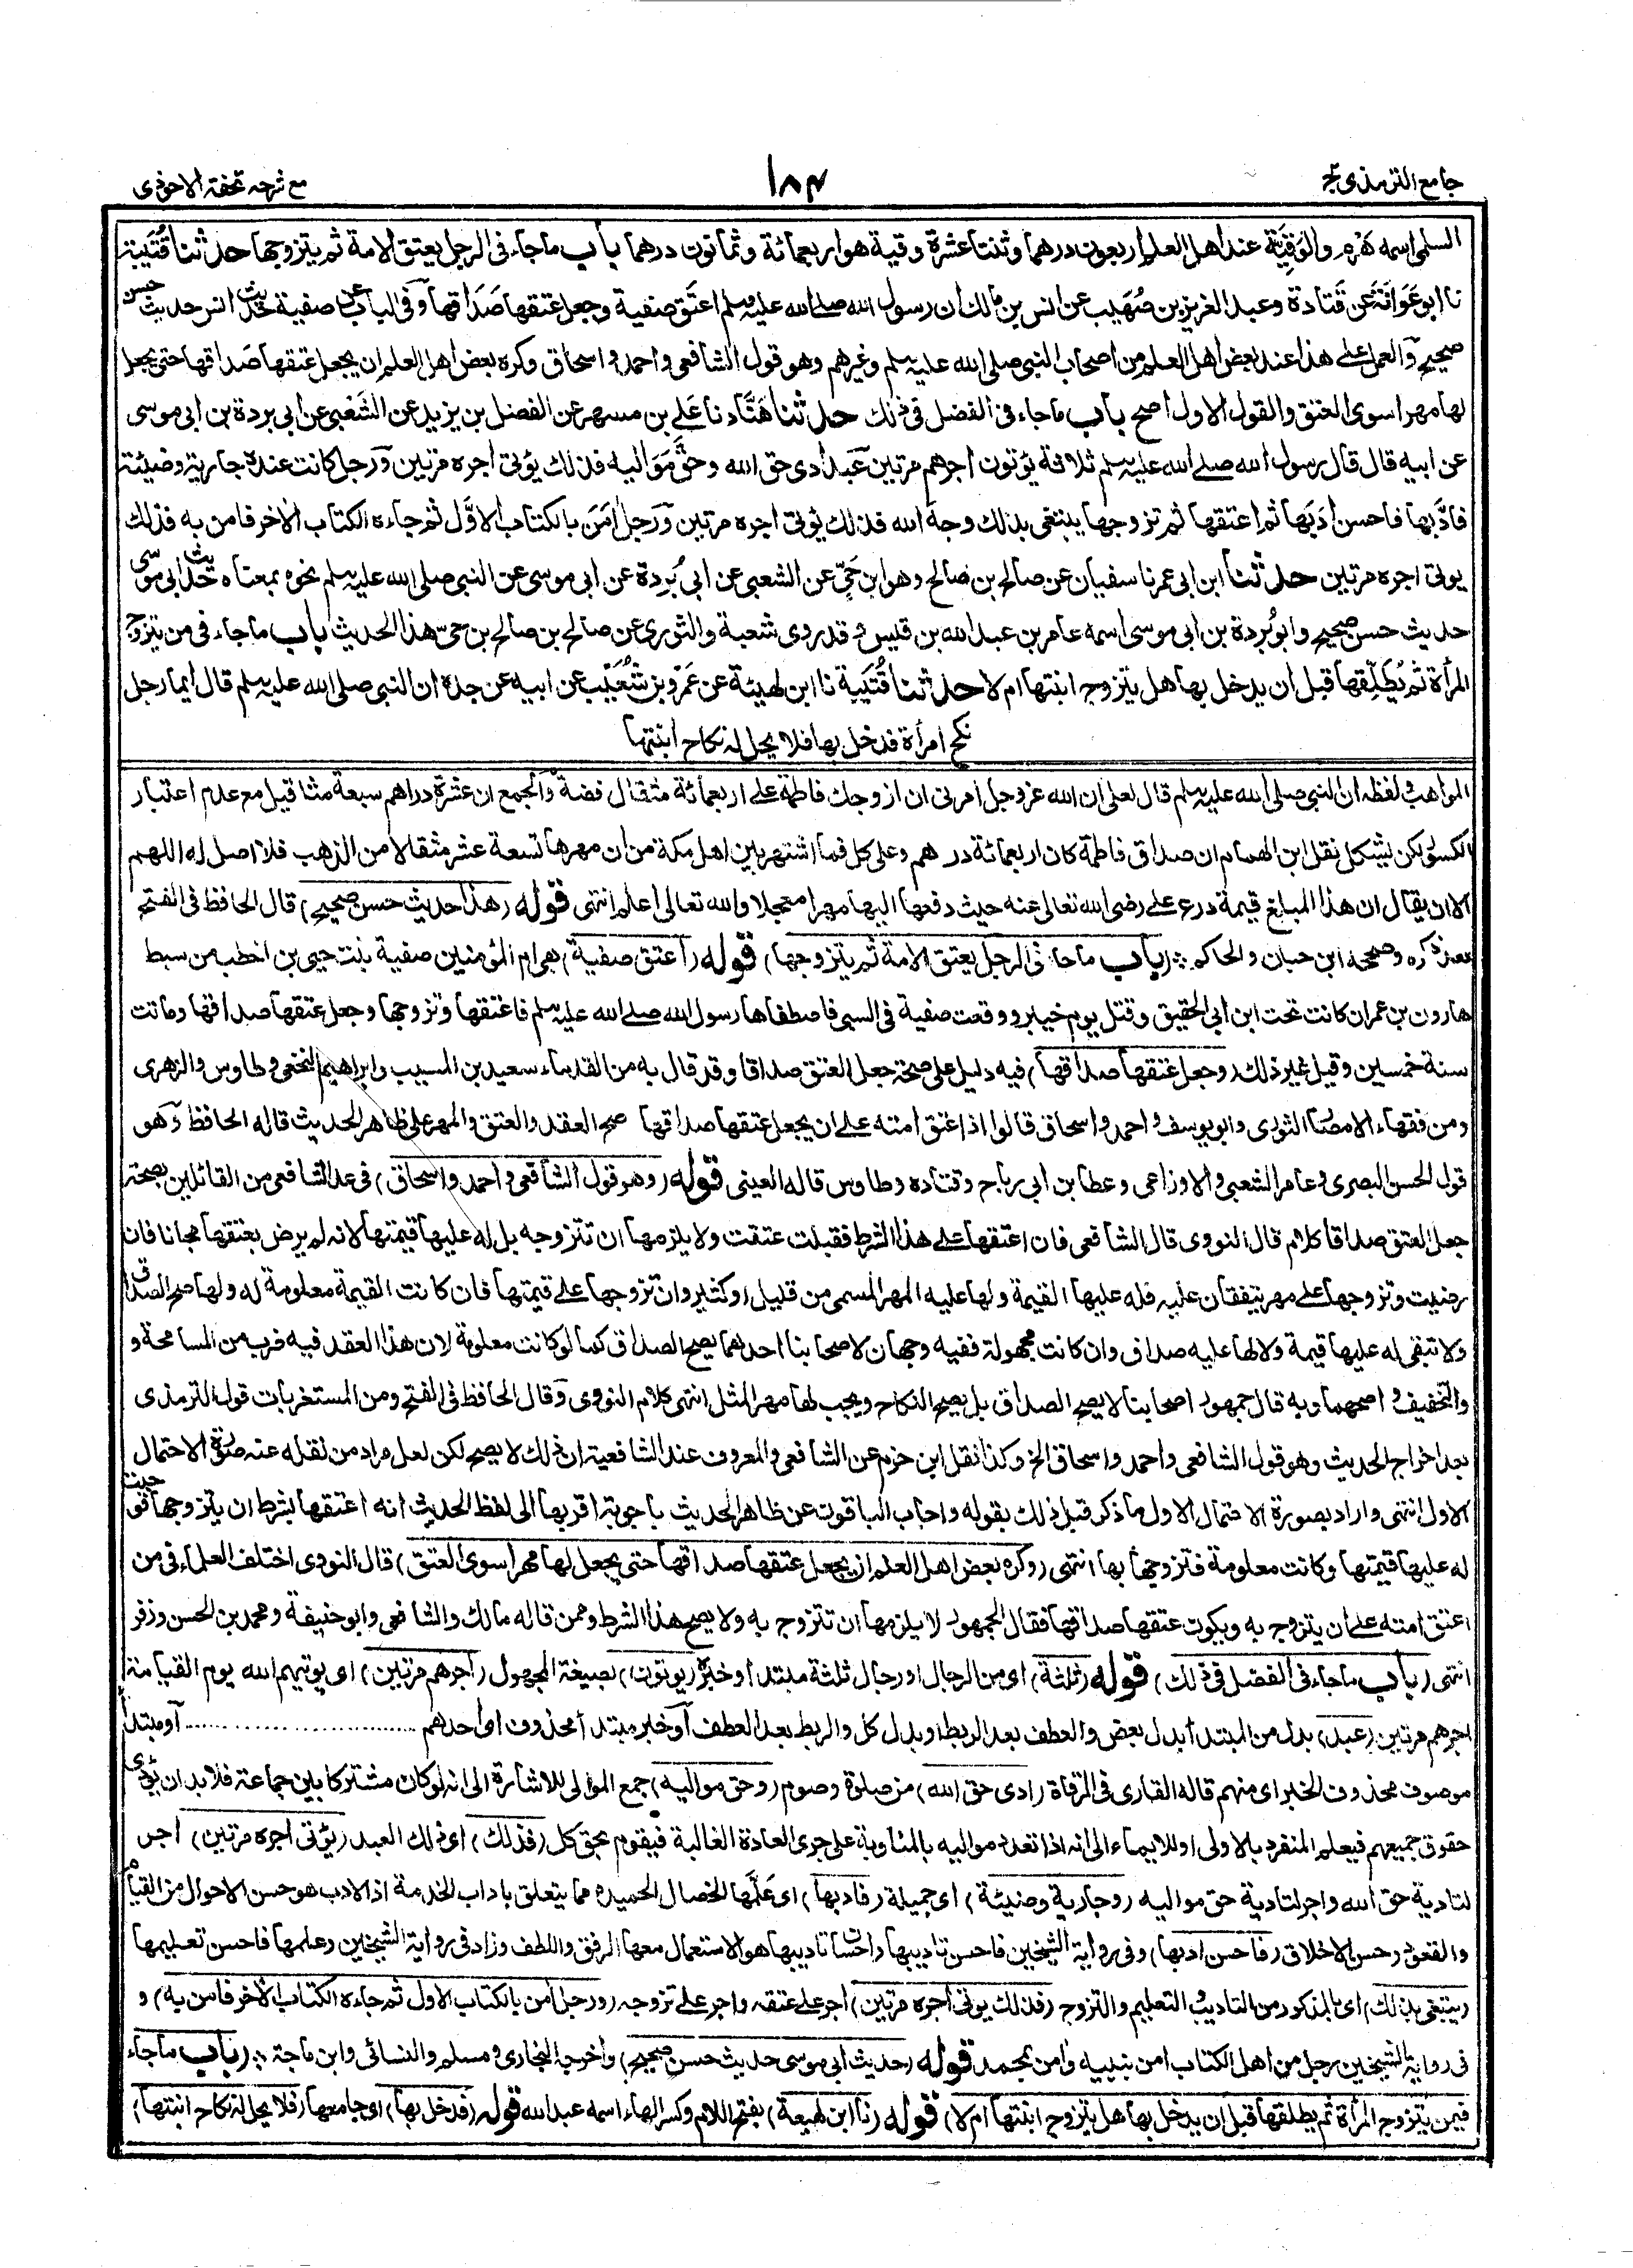 جامع الترمذى ج٢
١٨٤
مع شرحه تحفة الاحوذى
السلمى اسمه هَرِم والوَقِيَّة عند اهل العلم اربعون درهما وثنتا عشرة وقية هو اربعمائة وثمانون درهما باب ماجاء فى الرجل يعتق الامة ثم يتزوجها حدثنا قُتَيبة
نا ابو عَوَانَة عن قَتادة وعبد العزيز بن صُهَيب عن انس بن مالك ان رسول الله صلى الله عليه وسلم اعتق صفية وجعل عتقها صَداقها وفى الباب عن صفية حديث انس حديث حسن
صحيح والعمل على هذا عند بعض اهل العلم من اصحاب النبى صلى الله عليه وسلم وغيرهم وهو قول الشافعى واحمد واسحاق وكره بعض اهل العلم ان يجعل عتقها صَداقها حتى يجعل
لها مهرا سوى العتق والقول الاول اصح باب ماجاء فى الفضل فى ذلك حدثنا هَنَّاد نا على بن مسهر عن الفضل بن يزيد عن الشعبى عن ابى بردة بن ابى موسى
عن ابيه قال قال رسول الله صلى الله عليه وسلم ثلاثة يؤتون اجرهم مرتين عبد ادى حق الله وحق مَوَاليه فذلك يؤتى اجره مرتين ورجل كانت عنده جارية وضيئة
فادَّبها فاحسن ادَبها ثم اعتقها ثم تزوجها يبتغى بذلك وجهَ الله فذلك يؤتى اجره مرتين ورجل اٰمَنَ بالكتاب الاوَّل ثم جاءه الكتاب الاٰخر فامن به فذلك
يؤتى اجره مرتين حدثنا ابن ابى عمر نا سفيان عن صالح بن صالح وهو ابن حَيّ عن الشعبى عن ابى بُردة عن ابى موسى عن النبى صلى الله عليه وسلم نحوه بمعناه حديث ابى موسى
حديث حسن صحيح وابو بُردة بن ابى موسى اسمه عامر بن عبد الله بن قيس وقد روى شعبة والثورى عن صالح بن صالح بن حىّ هذا الحديث باب ماجاء فى من يتزوج
المرأة ثم يُطَلِّقها قبل ان يدخل بها هل يتزوج ابنتها ام لا حدثنا قُتَيبة نا ابن لهيعة عن عَمرو بن شُعَيْب عن ابيه عن جده ان النبى صلى الله عليه وسلم قال ايما رجل
نكح امرأة فدخل بها فلا يحل له نكاح ابنتها
المواهب ولفظه ان النبى صلى الله عليه وسلم قال لعلى ان الله عز وجل امرنى ان ازوجك فاطمة على اربعمائة مثقال فضة والجمع ان عشرة دراهم سبعة مثاقيل مع عدم اعتبار
الكسور لكن يشكل نقل ابن الهمام ان صداق فاطمة كان اربعمائة درهم وعلى كل فما اشتهر بين اهل مكة من ان مهرها تسعة عشر مثقالا من الذهب فلا اصل له اللهم
الا ان يقال ان هذا المبلغ قيمة درع على رضى الله تعالى عنه حيث دفعها اليها مهرا معجلا والله تعالى اعلم انتهى قوله (هذا حديث حسن صحيح) قال الحافظ فى الفتح
بعد ذكره وصححه ابن حبان والحاكم ❖ (باب ماجاء فى الرجل يعتق الامة ثم يتزوجها) قوله (اعتق صفية) هى ام المؤمنين صفية بنت حيى بن اخطب من سبط
هارون بن عمران كانت تحت ابن ابى الحقيق وقتل يوم خيبر ووقعت صفية فى السبى فاصطفاها رسول الله صلى الله عليه وسلم فاعتقها وتزوجها وجعل عتقها صداقها وماتت
سنة خمسين وقيل غير ذلك (وجعل عتقها صداقها) فيه دليل على صحة جعل العتق صداقا وقد قال به من القدماء سعيد بن المسيب وابراهيم النخعى وطاوس والزهرى
ومن فقهاء الامصار الثورى وابو يوسف واحمد واسحاق قالوا اذا اعتق امته على ان يجعل عتقها صداقها صح العقد والعتق والمهر على ظاهر الحديث قاله الحافظ وهو
قول الحسن البصرى وعامر الشعبى والاوزاعى وعطا بن ابى رباح وقتاده وطاوس قاله العينى قوله (وهو قول الشافعى واحمد واسحاق) فى عد الشافعى من القائلين بصحة
جعل العتق صداقا كلام قال النووى قال الشافعى فان اعتقها على هذا الشرط فقبلت عتقت ولا يلزمها ان تتزوجه بل له عليها قيمتها لانه لم يرض بعتقها مجانا فان
رضيت وتزوجها على مهر يتفقان عليه فله عليها القيمة ولها عليه المهر المسمى من قليل او كثير وان تزوجها على قيمتها فان كانت القيمة معلومة له ولها صح الصداق
ولا تبقى له عليها قيمة ولا لها عليه صداق وان كانت مجهولة ففيه وجهان لاصحابنا احدهما يصح الصداق كما لو كانت معلومة لان هذا العقد فيه ضرب من المسامحة و
والتخفيف واصحهما وبه قال جمهور اصحابنا لا يصح الصداق بل يصح النكاح ويجب لها مهر المثل انتهى كلام النووى وقال الحافظ فى الفتح ومن المستغربات قول الترمذى
بعد اخراج الحديث وهو قول الشافعى واحمد واسحاق الخ وكذا نقل ابن حزم عن الشافعى والمعروف عند الشافعية ان ذلك لا يصح لكن لعل مراد من نقله عنه صورة الاحتمال
الاول انتهى واراد بصورة الاحتمال الاول ما ذكر قبل ذلك بقوله واجاب الباقون عن ظاهر الحديث باجوبة اقربها الى لفظ الحديث انه اعتقها بشرط ان يتزوجها فوجبت
له عليها قيمتها وكانت معلومة فتزوجها بها انتهى (وكره بعض اهل العلم ان يجعل عتقها صداقها حتى يجعل لها مهرا سوى العتق) قال النووى اختلف العلماء فى من
اعتق امته على ان يتزوج به ويكون عتقها صداقها فقال الجمهور لا يلزمها ان تتزوج به ولا يصح هذا الشرط وممن قاله مالك والشافعى وابو حنيفة ومحمد بن الحسن وزفر
انتهى (باب ماجاء فى الفضل فى ذلك) قوله (ثلثة) اى من الرجال او رجال ثلثة مبتدأ وخبره (يوتون) بصيغة المجهول (اجرهم مرتين) اى يوتيهم الله يوم القيامة
اجرهم مرتين (عبد) بدل من المبتدأ بدل بعض والعطف بعد الربط او بدل كل والربط بعد العطف او خبر مبتدأ محذوف اى احدهم ........ او مبتدأ
موصوف محذوف الخبر اى منهم قاله القارى فى المرقاة (ادى حق الله) من صلوة وصوم (وحق مواليه) جمع الموالى للاشارة الى انه لو كان مشتركا بين جماعة فلا بد ان يؤدى
حقوق جميعهم فيعلم المنفرد بالاولى او للايماء الى انه اذا تعدد مواليه بالمناوبة على جرى العادة الغالبة فيقوم بحق كل (فذلك) اى ذلك العبد (يؤتى اجره مرتين) اجر
لتادية حق الله واجر لتادية حق مواليه (وجارية وضيئة) اى جميلة (فادبها) اى عَلَّمها الخصال الحميدة مما يتعلق باداب الخدمة اذ الادب هو حسن الاحوال من القيام
والقعود وحسن الاخلاق (فاحسن ادبها) وفى رواية الشيخين فاحسن تاديبها واحسان تاديبها هو الاستعمال معها الرفق واللطف وزاد فى رواية الشيخين وعلمها فاحسن تعليمها
(يبتغى بذلك) اى بالمذكور من التاديب والتعليم والتزوج (فذلك يوتى اجره مرتين) اجر على عتقه واجر على تزوجه (ورجل امن بالكتاب الاول ثم جاءه الكتاب الاٰخر فامن به) و
فى رواية الشيخين رجل من اهل الكتاب امن بنبيه وامن بمحمد قوله (حديث ابى موسى حديث حسن صحيح) واخرجه البخارى ومسلم والنسائى وابن ماجة ❖ (باب ماجاء
فيمن يتزوج المرأة ثم يطلقها قبل ان يدخل بها هل يتزوج ابنتها ام لا) قوله (نا ابن لهيعة) بفتح اللام وكسر الهاء اسمه عبد الله قوله (فدخل بها) اى جامعها (فلا يحل له نكاح ابنتها)